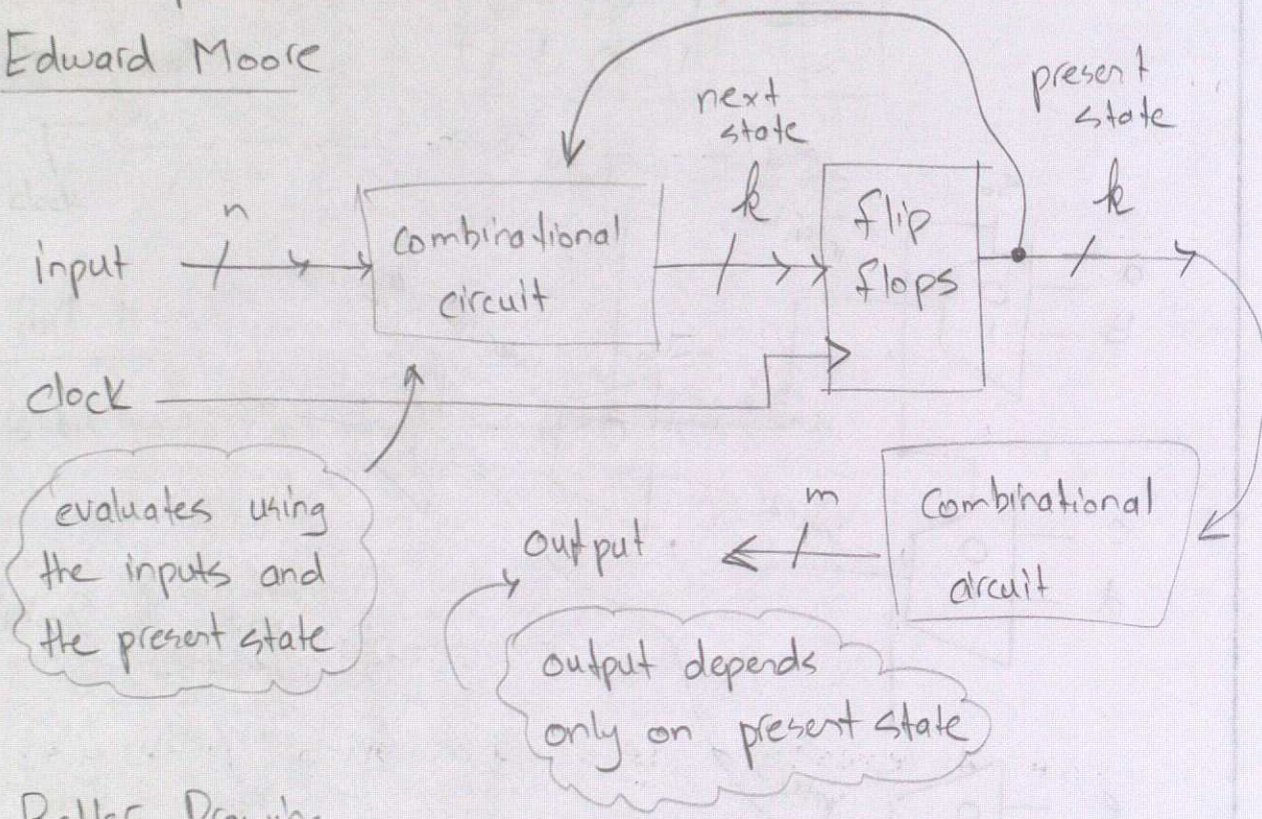 Edward Moore
next
state
present
state
n
k
k
input
combinational
circuit
flip
flops
clock
evaluates using
the inputs and
the present state
output
m
combinational
circuit
output depends
only on present state